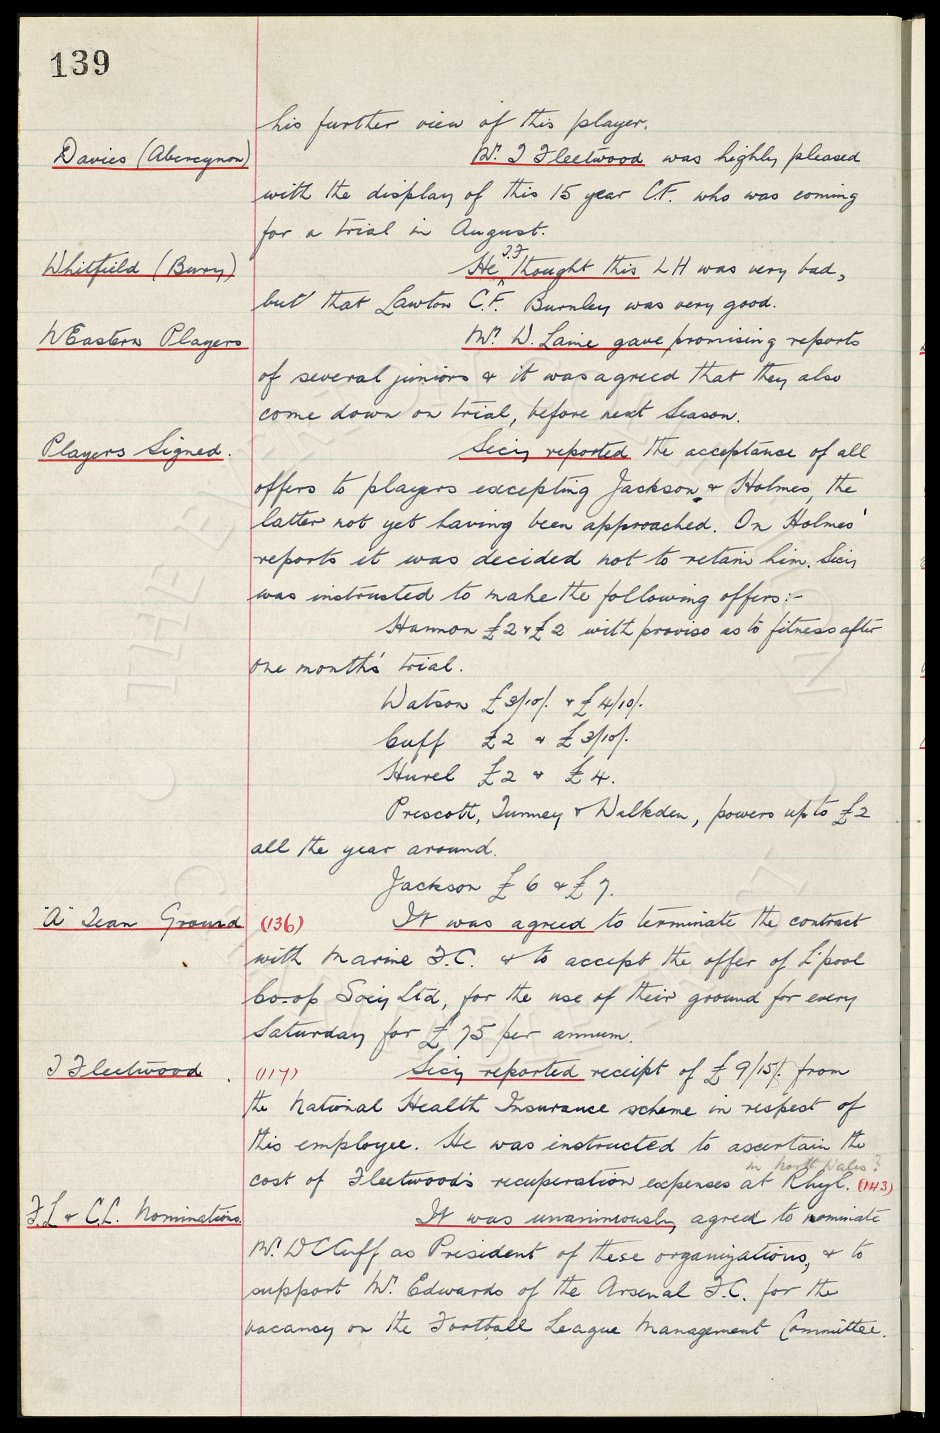 139
his further view of this player.
Davies (Abercynon) Mr. T Fleetwood was highly pleased
with the display of this 15 year C.F. who was coming
for a trial in August.
T.F
Whitfield (Bury) He thought this LH was very bad,
but that Lawton C.F. Burnley was very good.
N Eastern Players Mr. W. Laine gave promising reports
of several juniors & it was agreed that they also
come down on trial, before next Season.
Players Signed. Secy reported the acceptance of all
offers to players excepting Jackson & Holmes, the
latter not yet having been approached. On Holmes'
reports it was decided not to retain him. Secy
was instructed to make the following offers:-
Hannon £2 & £2 with proviso as to fitness after
one month's trial.
Watson £3/10/. & £4/10/.
Cuff £2 & £3/10/.
Hurel £2 & £4.
Prescott, Turney & Walkden, powers up to £2
all the year around.
Jackson £6 & £7.
"A" Team Ground (136) It was agreed to terminate the contract
with Marine F.C. & to accept the offer of L'pool
Co-op Socy Ltd, for the use of their ground for every
Saturday for £75 per annum.
T Fleetwood. (117) Secy reported receipt of £9/15/. from
the National Health Insurance scheme in respect of
this employee. He was instructed to ascertain the
in North Wales?
cost of Fleetwood's recuperation expenses at Rhyl. (143)
F.L & C.L. Nominations. It was unanimously agreed to nominate
Mr. W C Cuff as President of these organizations, & to
support Mr. Edwards of the Arsenal F.C. for the
vacancy on the Football League Management Committee.